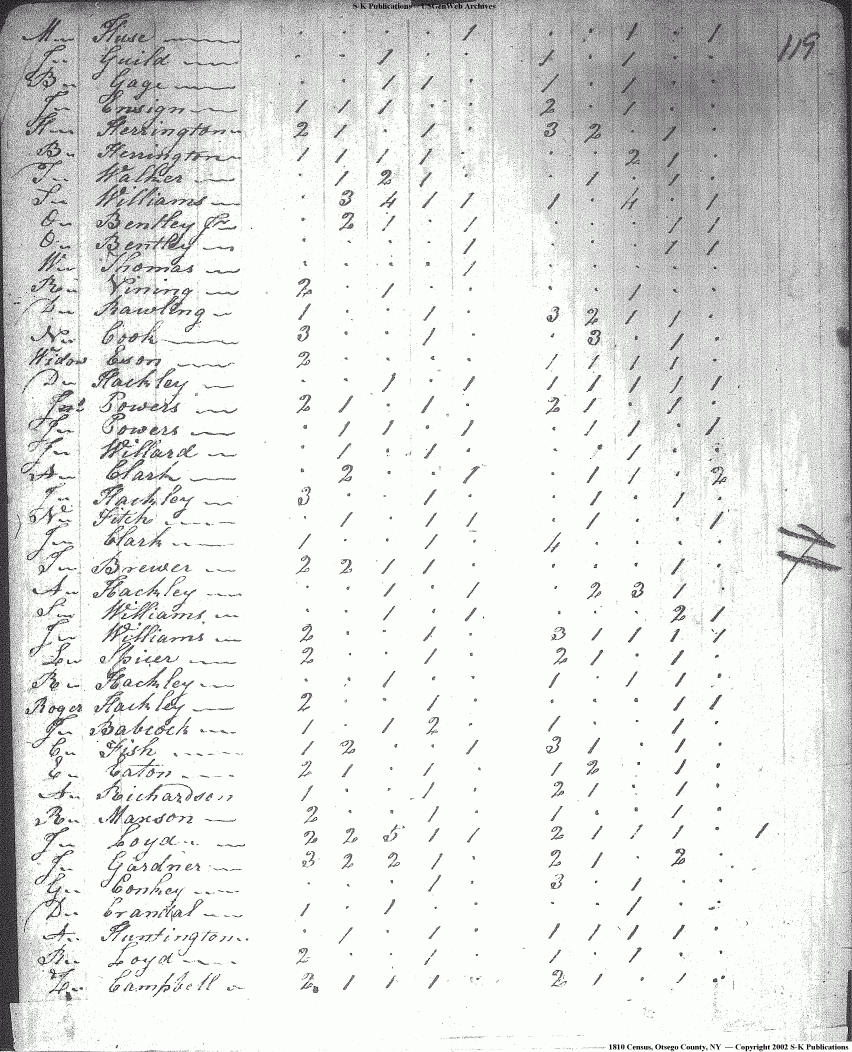 S-K Publications - USGenWeb Archives
119
M~ Huse . . . . 1 . . 1 . 1
J~ Guild . . 1 . . 1 . 1 . .
B~ Gage . . 1 1 . 1 . 1 . .
J~ Ensign 1 1 1 . . 2 . 1 . .
H~ Herrington 2 1 . 1 . 3 2 . 1 .
B~ Herrington 1 1 1 1 . . . 2 1 .
T~ Walker . 1 2 1 . . 1 . 1 .
S~ Williams . 3 4 1 1 1 . 4 . 1
O~ Bentley Jr . 2 1 . 1 . . . 1 1
O~ Bentley . . . . 1 . . . 1 1
W~ Thomas . . . . 1 . . . . .
R~ Vining 2 . 1 . . . . 1 . .
D~ Rawling 1 . . 1 . 3 2 1 1 .
N~ Cook 3 . . 1 . . 3 . 1 .
Widow Eson 2 . . . . 1 1 1 1 .
D~ Hackley . . 1 . 1 1 1 1 1 1
Jno Powers 2 1 . 1 . 2 1 . 1 .
J~ Powers . 1 1 . 1 . 1 1 . 1
J~ Willard . 1 . 1 . . . 1 . .
A~ Clark . 2 . . 1 . 1 1 . 2
J~ Hackley 3 . . 1 . . 1 . 1 .
N~ Fitch . 1 . 1 1 . 1 . . 1
J~ Clark 1 . . 1 . 4 . . . .
J~ Brewer 2 2 1 1 . . . . 1 .
A~ Hackley . . 1 . 1 . 2 3 1 .
S~ Williams . . 1 . 1 . . . 2 1
J~ Williams 2 . . 1 . 3 1 1 1 1
L~ Spicer 2 . . 1 . 2 1 . 1 .
R~ Hackley . . 1 . . 1 . 1 1 .
Roger Hackley 2 . . 1 . . . . 1 1
J~ Babcock 1 . 1 2 . 1 . . 1 .
C~ Fish 1 2 . . 1 3 1 . 1 .
E~ Eaton 2 1 . 1 . 1 2 . 1 .
A~ Richardson 1 . . 1 . 2 1 . 1 .
R~ Maxson 2 . . 1 . 1 . . 1 .
J~ Loyd 2 2 5 1 1 2 1 1 1 . 1
J~ Gardner 3 2 2 1 . 2 1 . 2 .
G~ Conkey . . . 1 . 3 . 1 . .
D~ Crandal 1 . 1 . . . . 1 . .
A~ Huntington . 1 . 1 . 1 1 1 1 .
R~ Loyd 2 . . 1 . 1 . 1 . .
Z~ Campbell 2 1 1 1 . 2 1 . 1 .
1810 Census, Otsego County, NY — Copyright 2002 S-K Publications